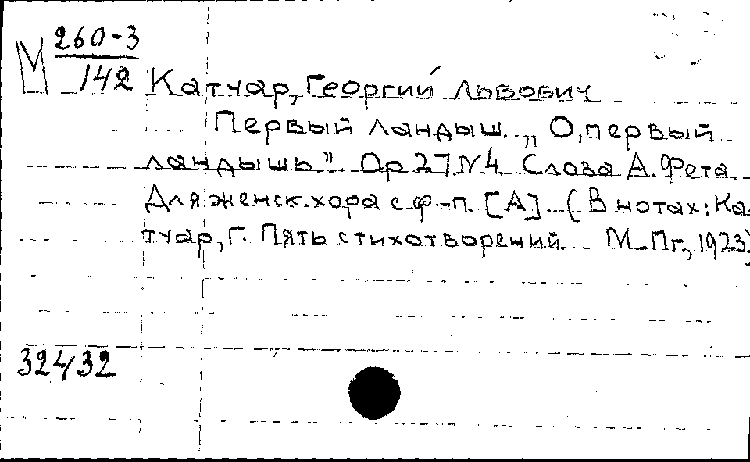 М 260-3
142
Катуар, Георгий Львович
Первый ландыш. „О, первый
ландышь" Ор 27 N4 Слова А. Фета
Для женск. хора с ф-п. [А] (В нотах: Ка-
туар, Г. Пять стихотворений М.-Пг., 1923)
324/32